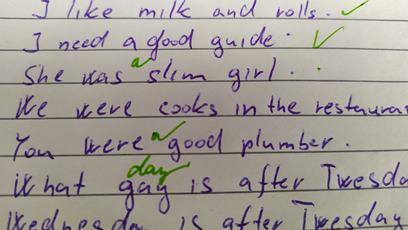 I like milk and rolls.
I need a good guide.
She was a slim girl.
We were cooks in the restauran
You were a good plumber.
day
What gay is after Twesda
Wednesda is after Twesday